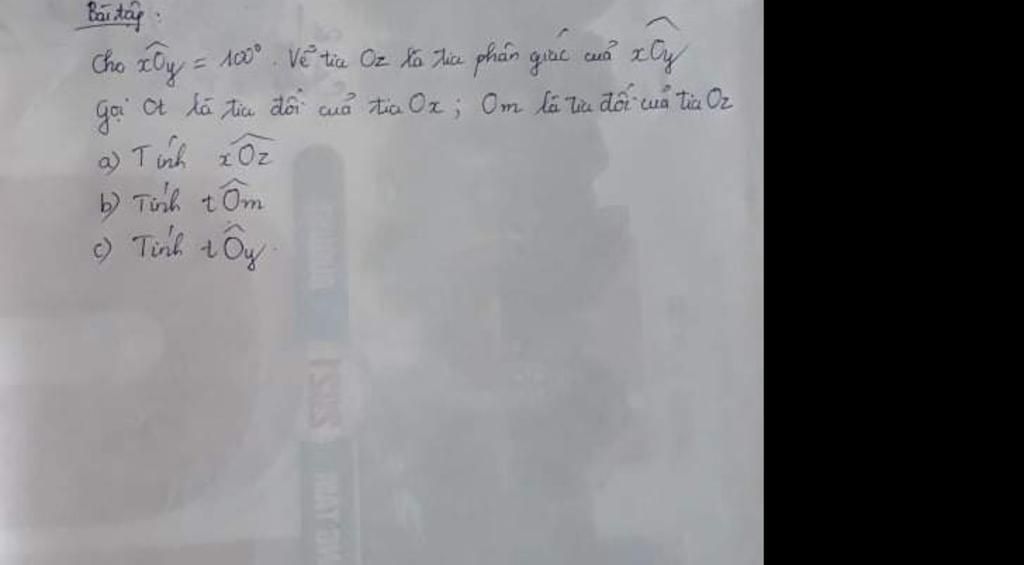 Bài tập:
Cho xÔy = 100°. Vẽ tia Oz là tia phân giác của xÔy
Gọi Ot là tia đối của tia Ox; Om là tia đối của tia Oz
a) Tính xÔz
b) Tính tÔm
c) Tính tÔy.